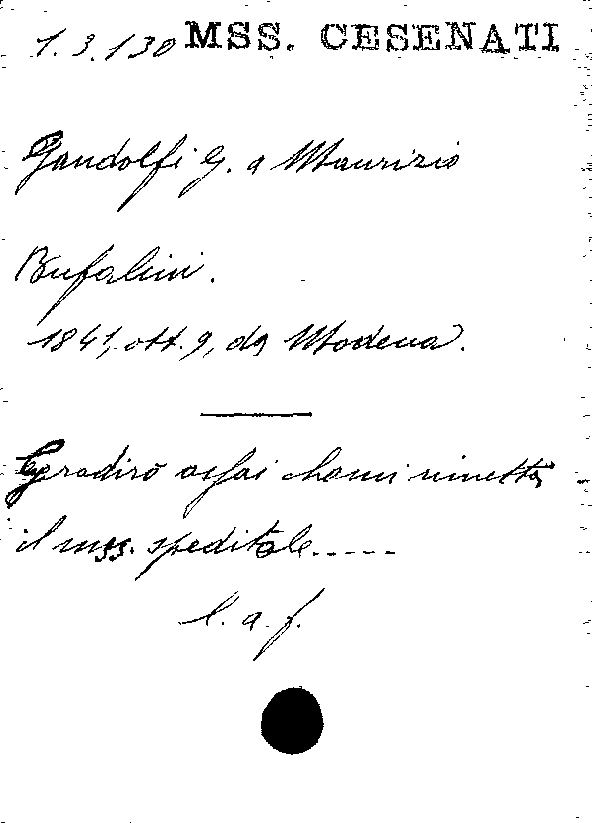 1.3.130 MSS. CESENATI
Gandolfi G. a Maurizio
Bufalini.
1841, ott. 9, da Modena.
Gradirò assai che mi rimetta
il mss. speditole.....
l. a. f.